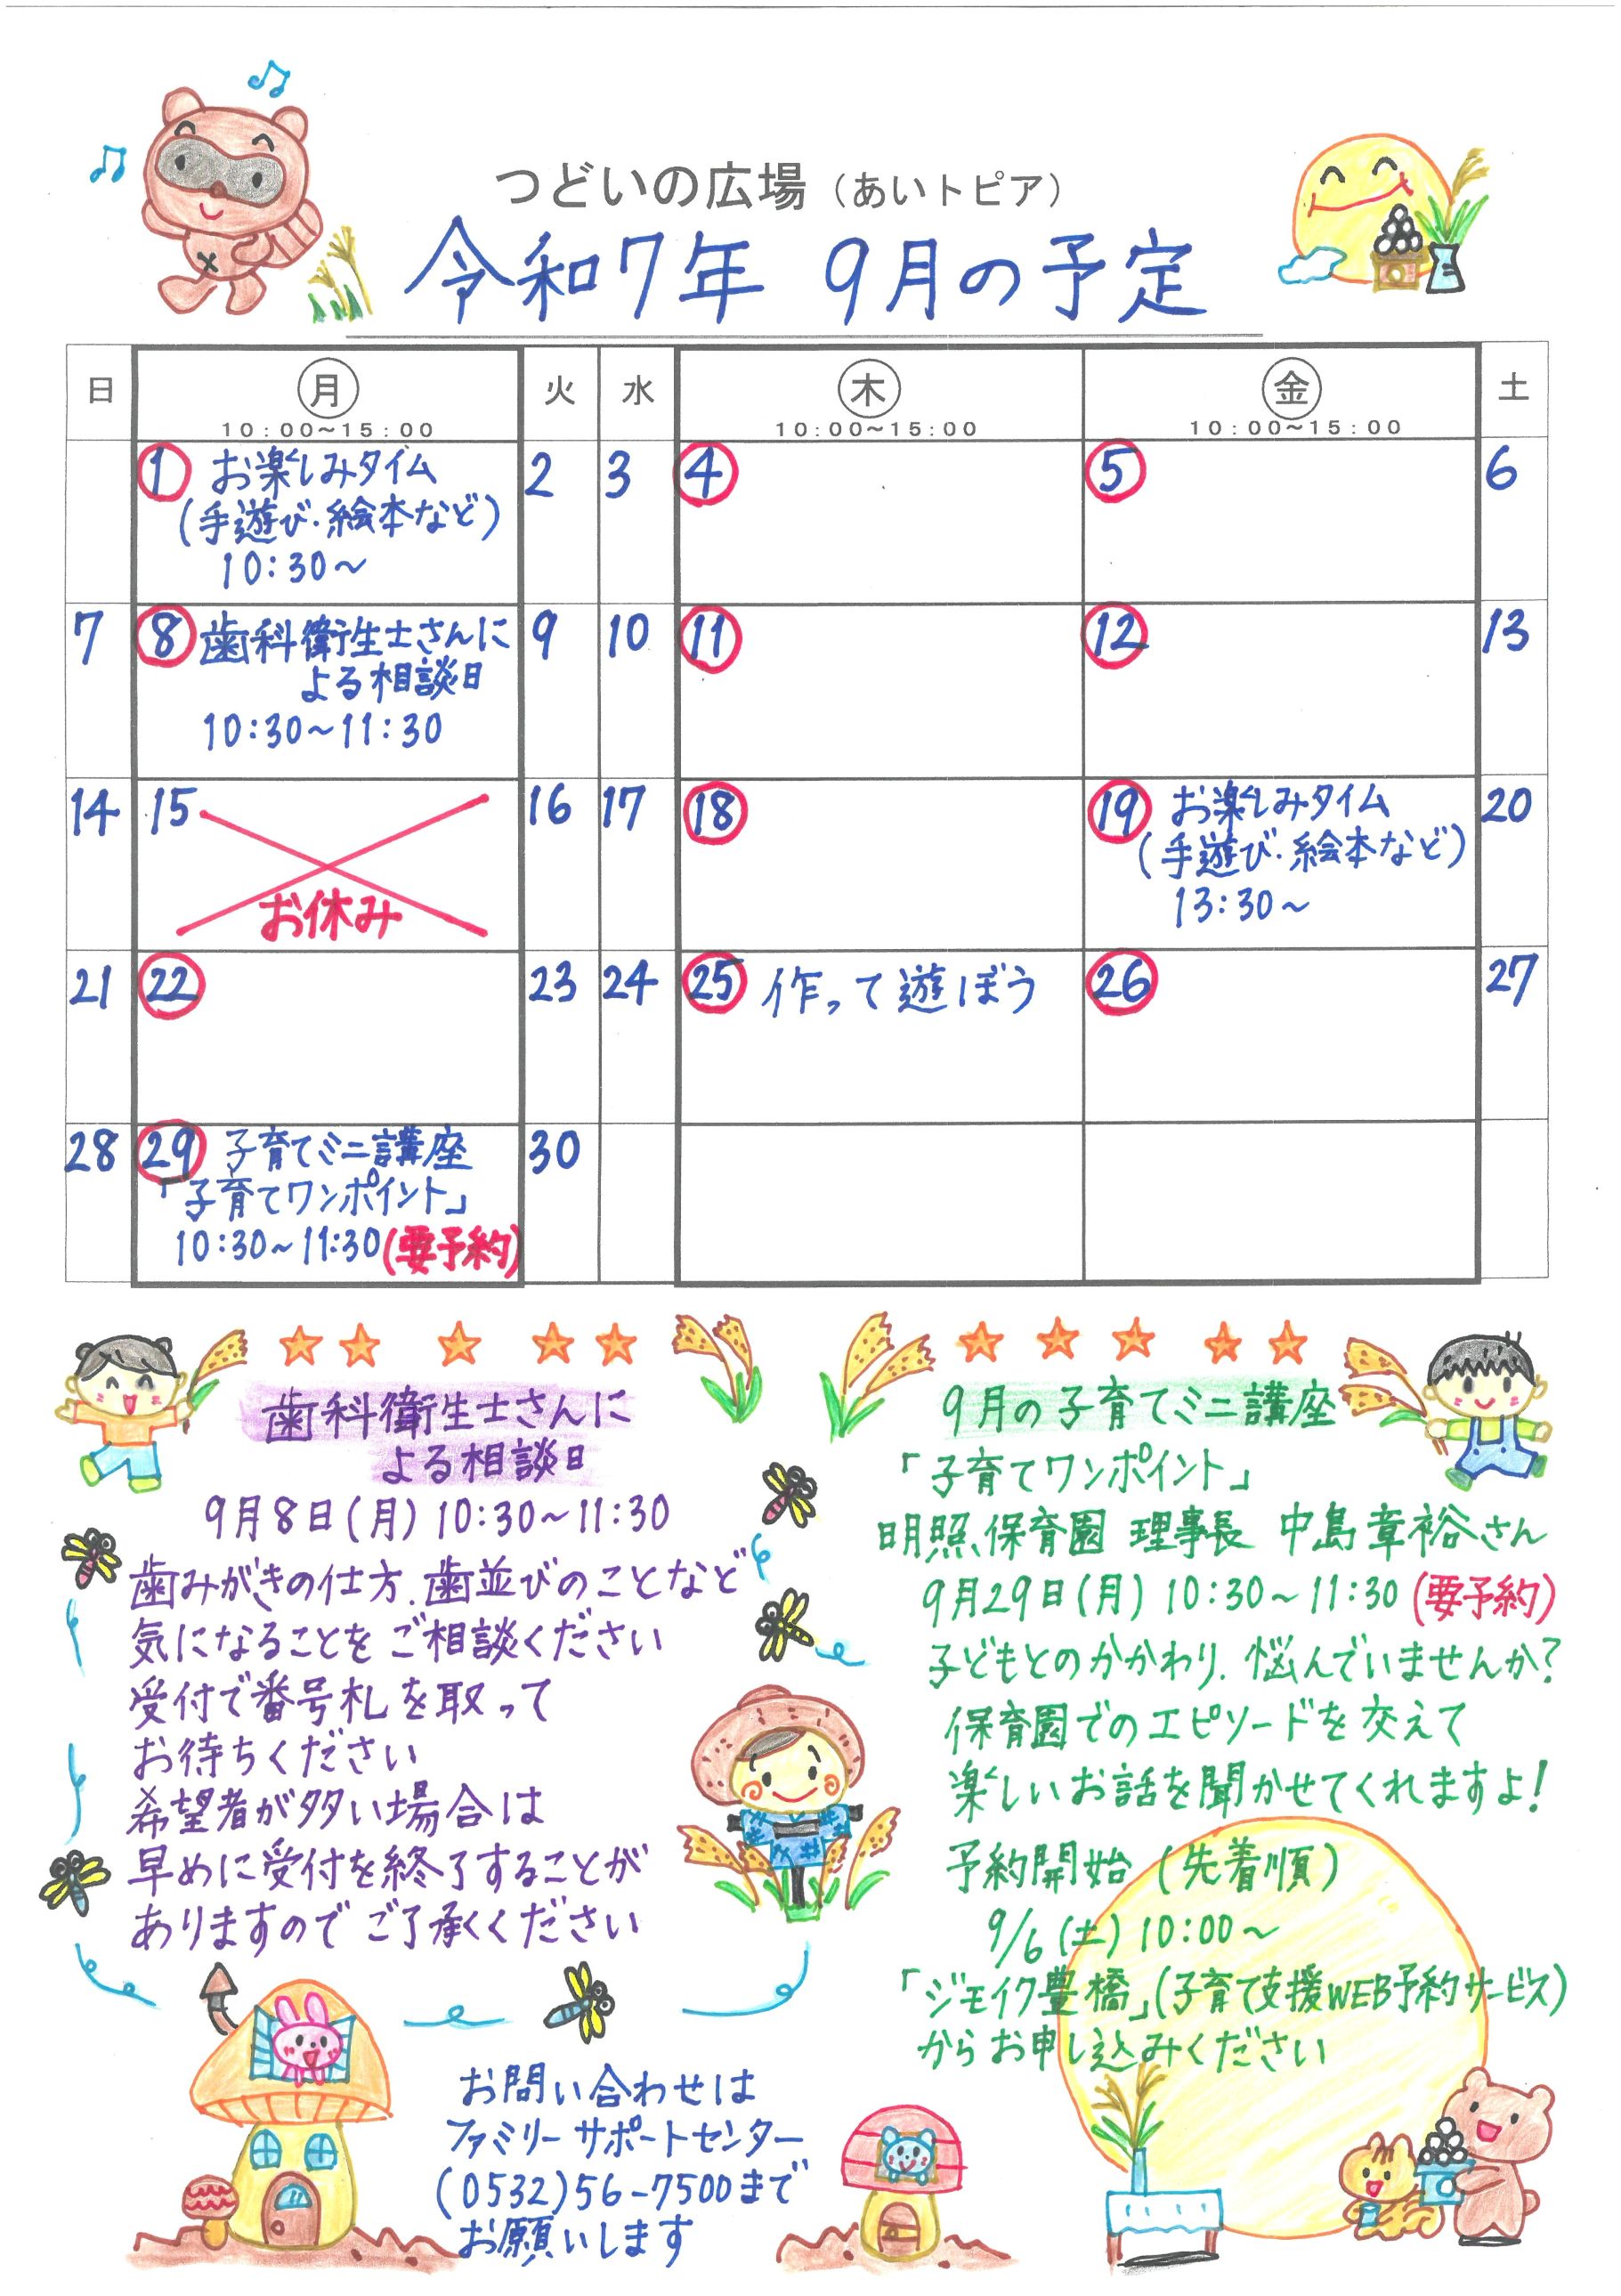 つどいの広場（あいトピア）
令和7年 9月の予定
日 月 火 水 木 金 土
10:00~15:00 10:00~15:00 10:00~15:00
1 お楽しみタイム
(手遊び・絵本など)
10:30~
2 3 4 5 6
7
8 歯科衛生士さんに
よる相談日
10:30~11:30
9 10 11 12 13
14 15
お休み
16 17 18
19 お楽しみタイム
(手遊び・絵本など)
13:30~
20
21 22 23 24 25 作って遊ぼう 26 27
28
29 子育てミニ講座
「子育てワンポイント」
10:30~11:30(要予約)
30
歯科衛生士さんに
よる相談日
9月8日(月) 10:30~11:30
歯みがきの仕方、歯並びのことなど
気になることをご相談ください
受付で番号札を取って
お待ちください
希望者が多い場合は
早めに受付を終了することが
ありますのでご了承ください
9月の子育てミニ講座
「子育てワンポイント」
明照保育園 理事長 中島章裕さん
9月29日(月) 10:30~11:30(要予約)
子どもとのかかわり、悩んでいませんか?
保育園でのエピソードを交えて
楽しいお話を聞かせてくれますよ!
予約開始 (先着順)
9/6(土) 10:00~
「ジモイク豊橋」(子育て支援WEB予約サービス)
からお申し込みください
お問い合わせは
ファミリーサポートセンター
(0532)56-7500まで
お願いします